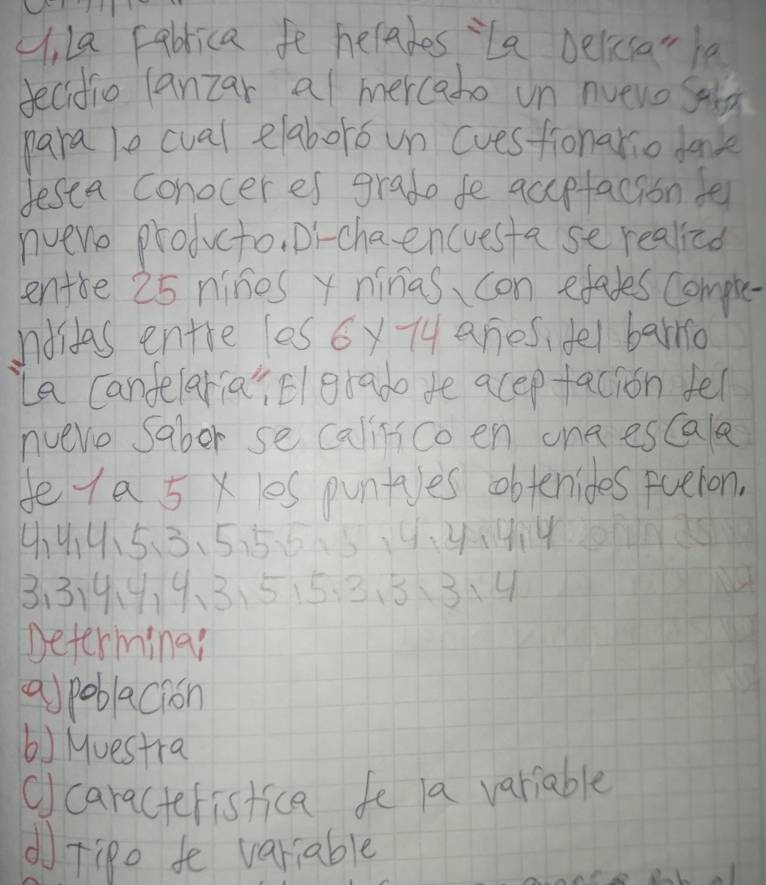 1. La Fabrica de helados "La Delicia" ha
decidio lanzar al mercado un nuevo
para lo cual elaboró un cuestionario donde
desea conocer el grado de acceptación del
nuevo producto. Di-cha encuesta se realizó
entre 25 niños y niñas, con edades Compre-
ndidas entre los 6 y 14 años, del barrio
"La Candelaria", El grado de aceptación del
nuevo Sabor se calificó en una escala
de 1 a 5 y los puntajes obtenidos fueron.
4, 4, 4, 5, 3, 5, 5, 5, 5, 4, 4, 4, 4
3, 3, 4, 4, 4, 3, 5, 5, 3, 3, 3, 4
Determina:
a) población
b) Muestra
c) característica de la variable
d) Tipo de variable